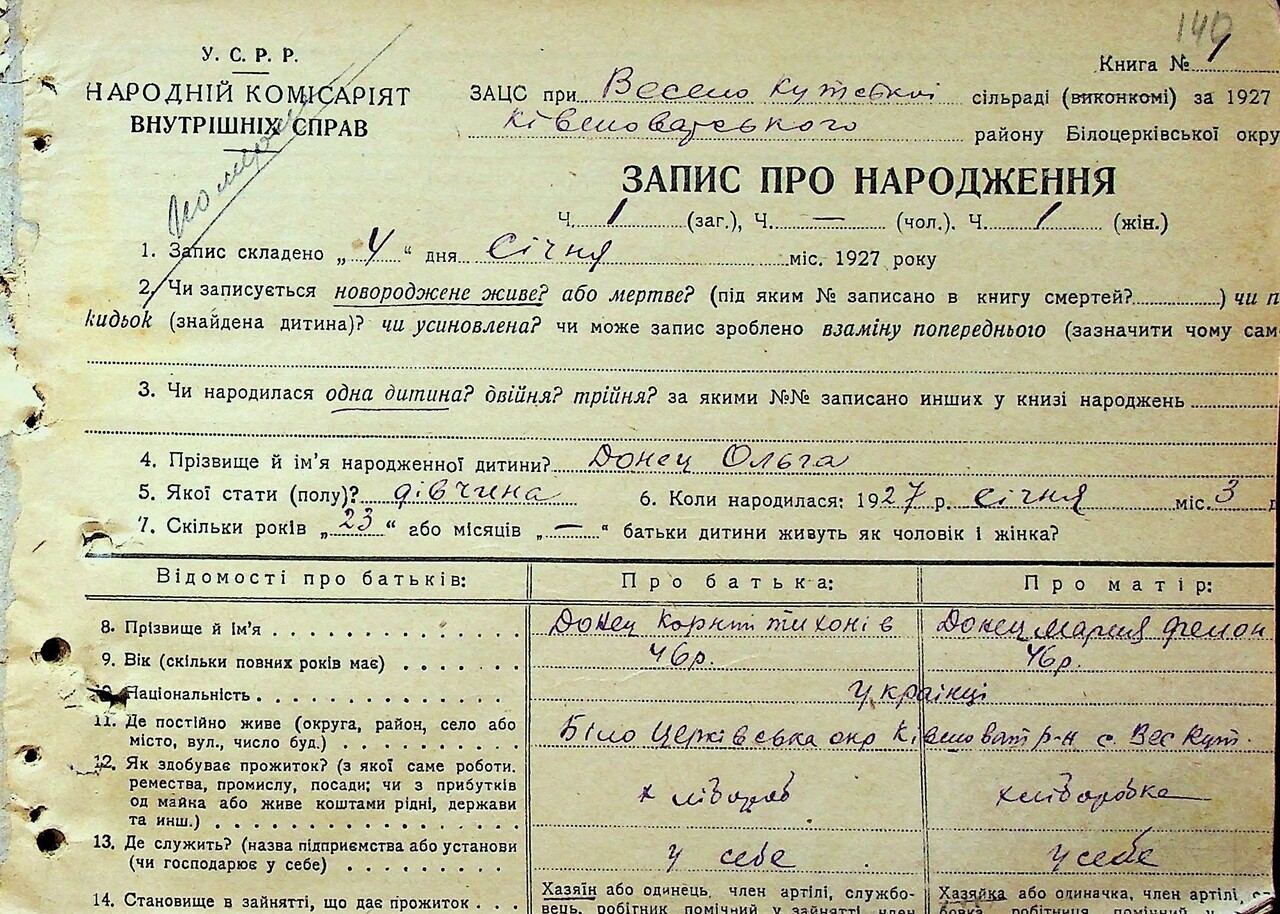 140
У. С. Р. Р.
НАРОДНІЙ КОМІСАРІЯТ
ВНУТРІШНІХ СПРАВ
Книга № 1
ЗАЦС при Весело Кутській сільраді (виконкомі) за 1927
району Білоцерківської окру
ЗАПИС ПРО НАРОДЖЕННЯ
Ч. 1 (заг.), Ч. — (чол.). Ч. 1 (жін.)
1. Запис складено „ 4 “ дня Січня міс. 1927 року
2. Чи записується новороджене живе? або мертве? (під яким № записано в книгу смертей? ) чи п
кидьок (знайдена дитина)? чи усиновлена? чи може запис зроблено взаміну попереднього (зазначити чому сам
3. Чи народилася одна дитина? двійня? трійня? за якими №№ записано инших у книзі народжень
4. Прізвище й ім'я народженної дитини? Донец Ольга
5. Якої стати (полу)? дівчина 6. Коли народилася: 1927 р. січня міс. 3 д
7. Скільки років „ 23 “ або місяців „ — “ батьки дитини живуть як чоловік і жінка?
Відомості про батьків: Про батька: Про матір:
8. Прізвище й ім'я Донец тихонів Донец Мария
9. Вік (скільки повних років має) 46р. 46р.
10. Національність українці
11. Де постійно живе (округа, район, село або
місто, вул., число буд.) Біло Церківська окр р-н с. Вес Кут.
12. Як здобуває прожиток? (з якої саме роботи.
ремества, промислу, посади; чи з прибутків
од майна або живе коштами рідні, держави
та инш.) хлібороб хліборобка
13. Де служить? (назва підприємства або установи
(чи господарює у себе) у себе у себе
14. Становище в зайнятті, що дає прожиток Хазяїн або одинець, член артілі, службо- Хазяйка або одиначка, член артілі,
вець, робітник помічний у зайнятті, член робітниця помічний